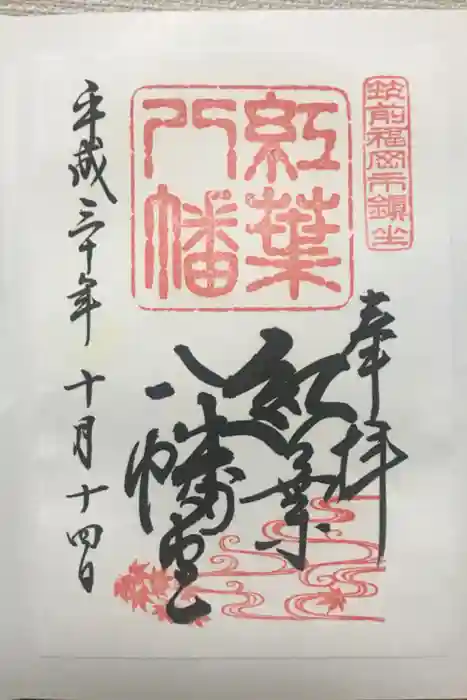 筑前福岡市鎮坐
奉拝
紅葉
八幡
紅葉
八幡宮
平成三十年十月十四日